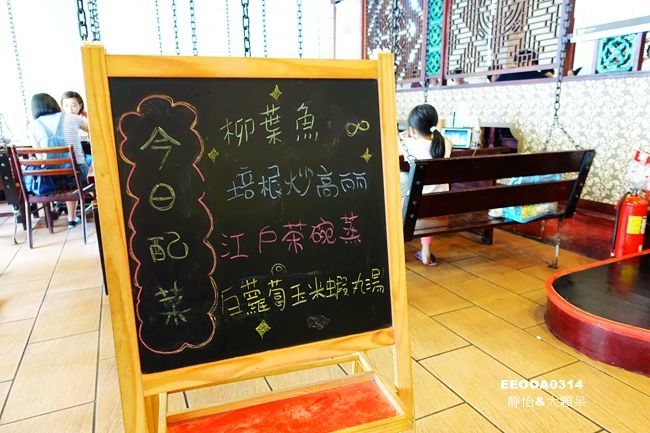 今日配菜
柳葉魚
培根炒高麗
江戶茶碗蒸
白蘿蔔玉米蝦丸湯
EEOOA0314
靜怡&大顆呆